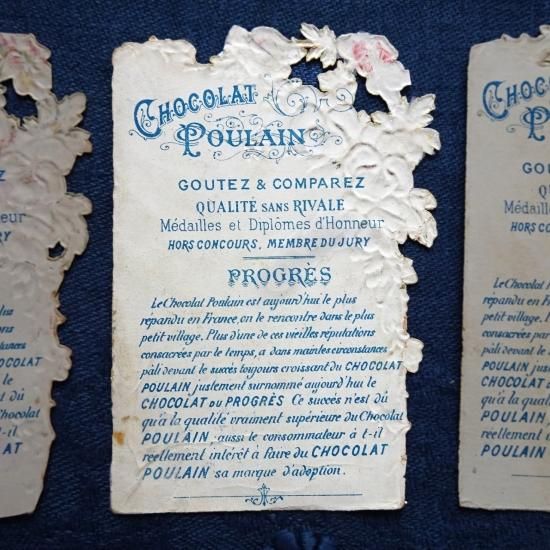 CHOCOLAT
POULAIN
GOUTEZ & COMPAREZ
QUALITÉ SANS RIVALE
Médailles et Diplômes d'Honneur
HORS CONCOURS, MEMBRE DU JURY
PROGRÈS
Le Chocolat Poulain est aujourd'hui le plus
répandu en France, on le rencontre dans le plus
petit village. Plus d'une de ces vieilles réputations
consacrées par le temps, a dans maintes circonstances
pâli devant le succès toujours croissant du CHOCOLAT
POULAIN justement surnommé aujourd'hui le
CHOCOLAT DU PROGRÈS Ce succès n'est dû
qu'à la qualité vraiment supérieure du Chocolat
POULAIN, aussi le consommateur à t-il
réellement intérêt à faire du CHOCOLAT
POULAIN sa marque d'adoption.
eur
RY
plus
ons
stances
COLAT
le
dû
Chocolat
t-il
AT
CHOC
P
GOU
QUA
Médail
HORS CO
Le Chocolat
répandu en
petit village.
consacrées par
pâli devant le
POULAIN jus
CHOCOLAT
qu'à la qual
POULAIN,
réellement
POULAIN